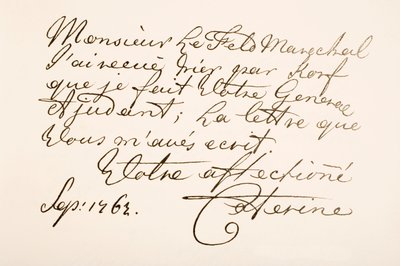 Monsieur Le Feld Marechal
J'ai recuë hier par Korf
que je fait Votre General
Adjudant; la lettre que
Vous m'avés ecrit.
Votre affectioñé
Sep: 1762. Caterine